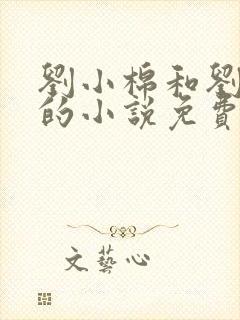 劉小棉和劉
的小説免費
文藝心